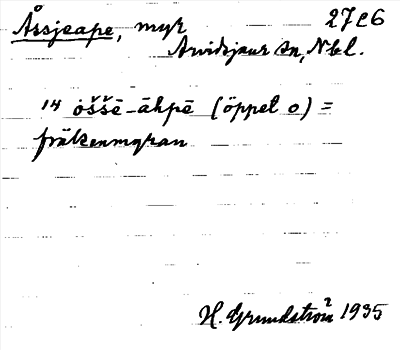 Åssjeape, myr 27e6
Arvidsjaur sn, Nbl.
14 ȯššē-āhpē (öppet o) =
fräkenmyran
H. Grundström 1935